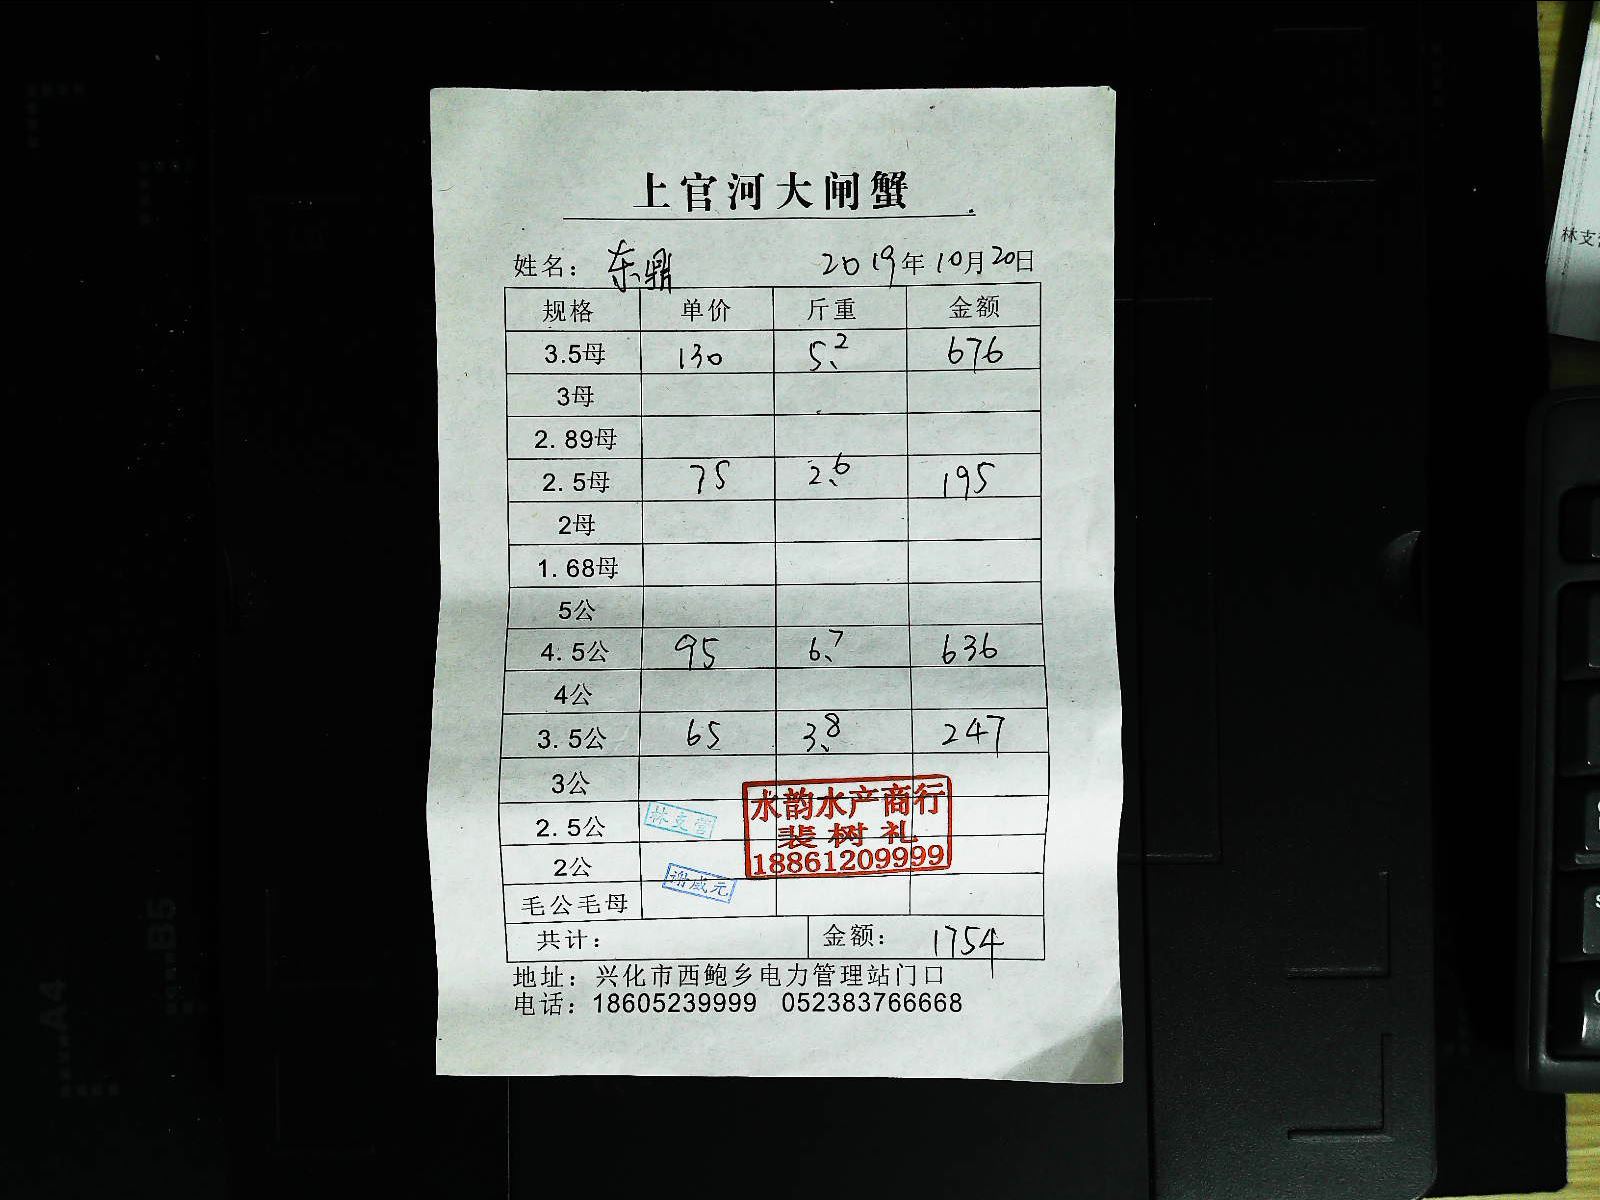 上官河大闸蟹
姓名： 东鼎 2019年10月20日
规格 单价 斤重 金额
3.5母 130 5.2 676
3母
2.89母
2.5母 75 2.6 195
2母
1.68母
5公
4.5公 95 6.7 636
4公
3.5公 65 3.8 247
3公
水韵水产商行
2.5公 林支管
裴树礼
2公
18861209999
谢咸元
毛公毛母
共计： 金额： 1754
地址：兴化市西鲍乡电力管理站门口
电话：18605239999 052383766668
林支
A4
B5